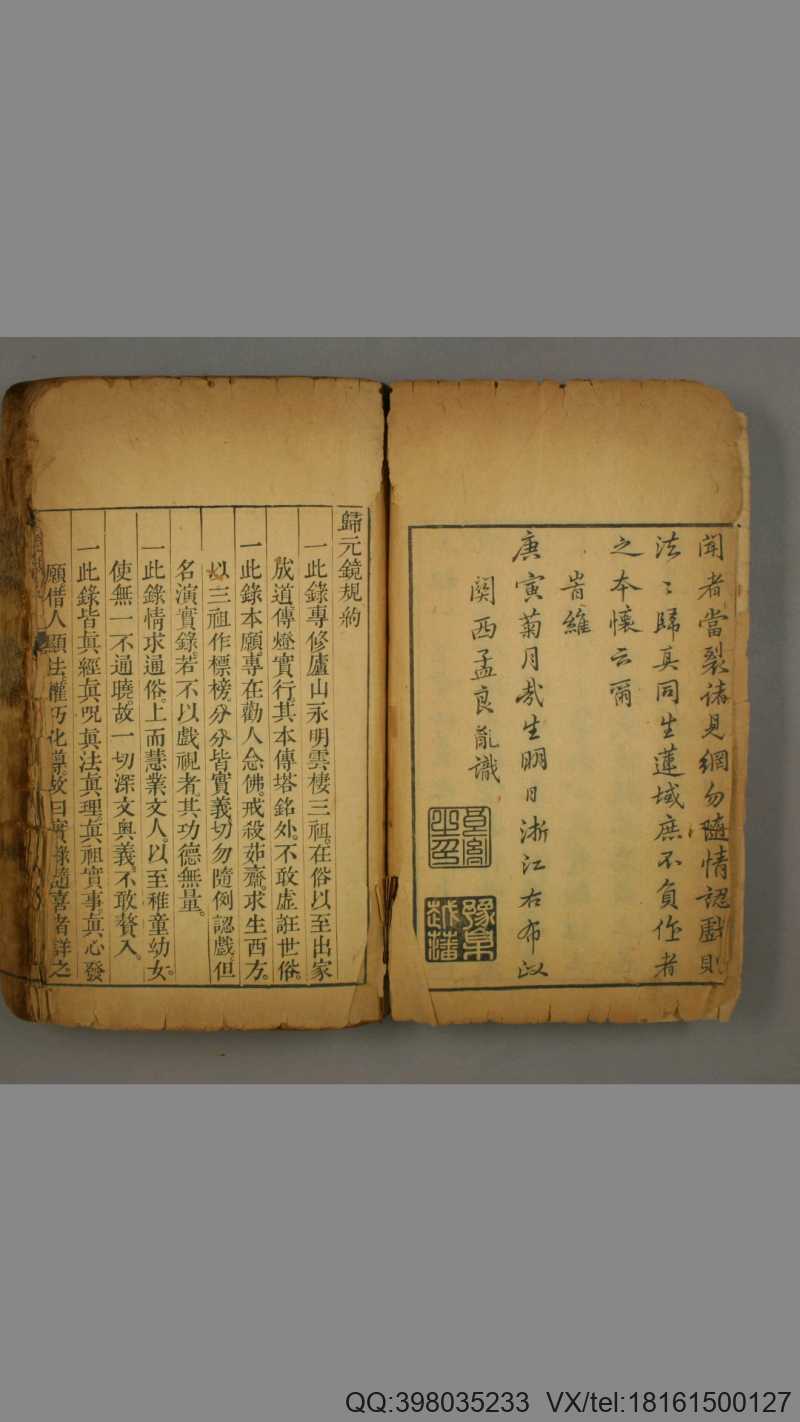 聞者當裂諸見網勿隨情認戲則
法〻歸真同生蓮域庶不負作者
之本懷云爾
旹維
庚寅菊月哉生明日浙江右布政
関西孟良胤識
豫章
越藩
歸元鏡規約
一此錄專修廬山永明雲棲三祖。在俗以至出家
放道傳燈實行其本傳塔銘外。不敢虛誑世俗。
一此錄本願專在勸人念佛。戒殺茹齋。求生西方。
以三祖作標榜。分分皆實義。切勿隨例認戲但
名演實錄。若不以戲視者。其功德無量。
一此錄情求通俗。上而慧業文人。以至稚童幼女。
使無一不通曉。故一切深文奧義。不敢贅入。
一此錄皆眞經眞呪眞法眞理。眞祖實事。眞心發
願借人顯法權巧化導故曰實錄隨喜者詳之
QQ:398035233 VX/tel:18161500127